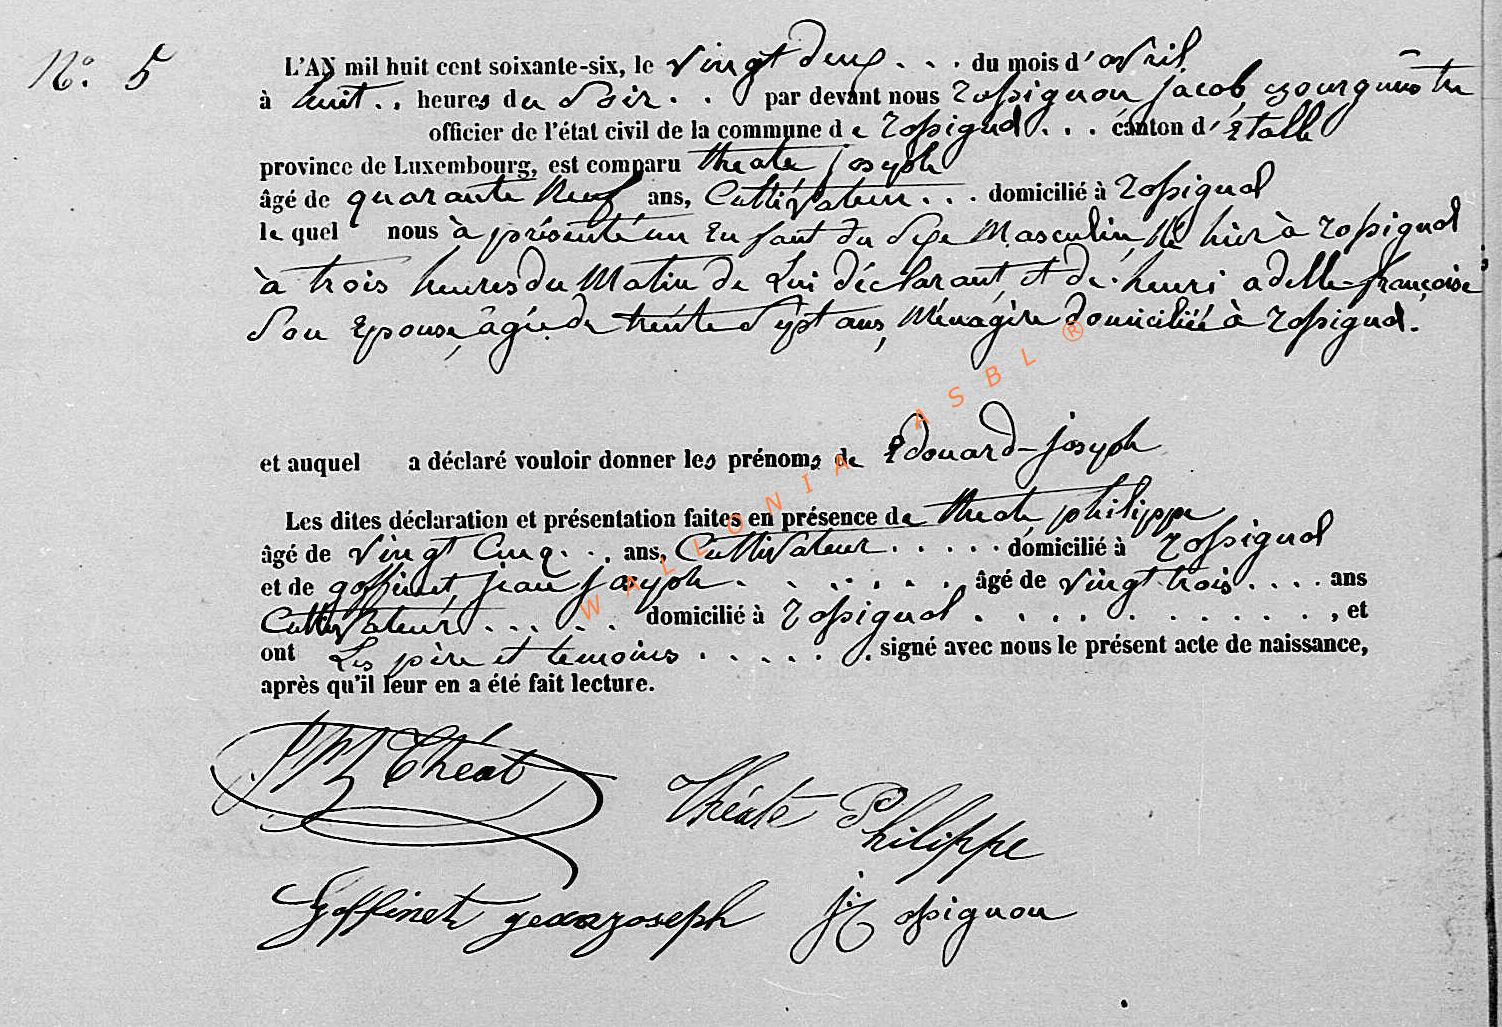 N° 5
L'AN mil huit cent soixante-six, le vingt deux . . . du mois d'avril
à huit . . heures du Soir . . par devant nous rossignon jacob, bourguemtre
officier de l'état civil de la commune de rossignol . . . canton d'Etalle
province de Luxembourg, est comparu theate joseph
âgé de quarante Neuf ans, Cultivateur . . . domicilié à rossignol
le quel nous à présenté un Enfant du Sexe Masculin, Né hier à rossignol
à trois heures du Matin de Lui déclarant, et de henri adelle françoise
Son Epouse, âgée de trente Sept ans, Ménagère domiciliée à rossignol.
et auquel a déclaré vouloir donner les prénoms de Edouard-joseph
Les dites déclaration et présentation faites en présence de theate philippe
âgé de vingt Cinq . . . ans, Cultivateur . . . . . domicilié à rossignol
et de goffinet, jean joseph . . . . . . . . âgé de vingt trois . . . . ans
Cultivateur . . . . . domicilié à rossignol . . . . . . . . . . , et
ont Les père et temoins . . . . . . signé avec nous le présent acte de naissance,
après qu'il leur en a été fait lecture.
Théat
Théate Philippe
Goffinet jean joseph J rossignon
WALLONIA ASBL ®